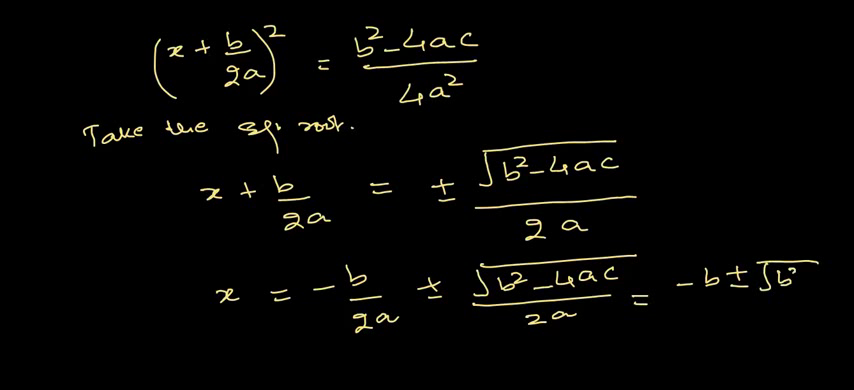 (x + b/2a)² = b² - 4ac / 4a²
Take the sq. root.
x + b/2a = ± √b² - 4ac / 2a
x = - b/2a ± √b² - 4ac / 2a = - b ± √b²